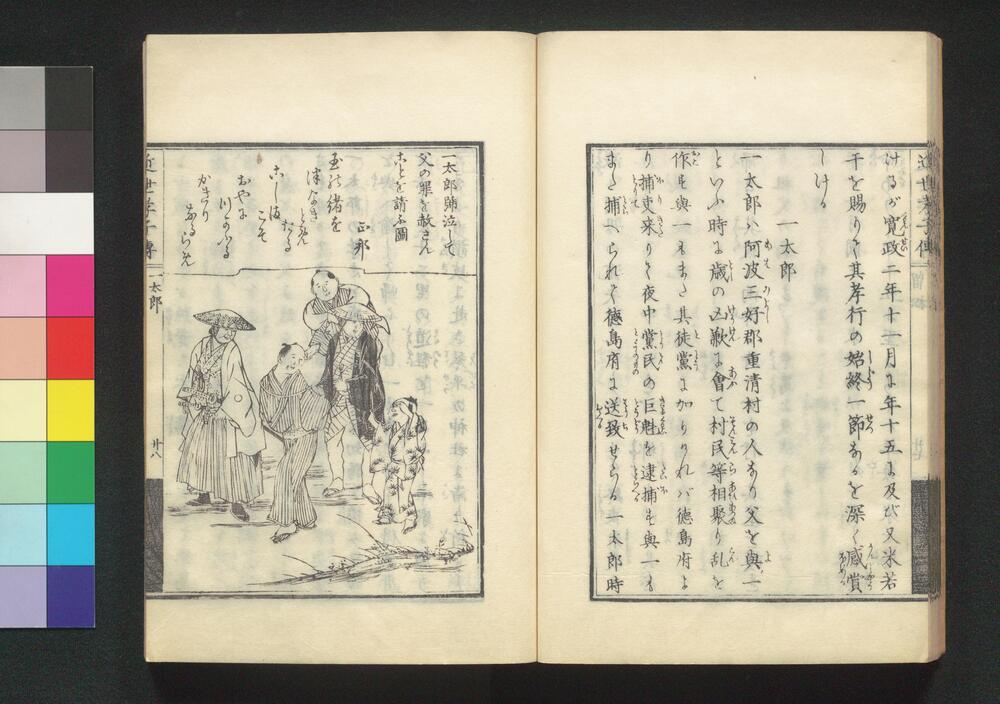 けるが寛政二年十二月に年十五に及び又米若
干を賜りて其孝行の始終一節なるを深く感賞
しける
一太郎
一太郎ハ阿波三好郡重清村の人なり父を與一
といふ時に歳の凶歉に會て村民等相聚り乱を
作す與一もまた其徒黨に加りければ徳島府よ
り捕吏来りて夜中黨民の巨魁を逮捕す與一も
また捕へられて徳島府に送致せらる一太郎時
一太郎號泣して
父の罪を赦さん
ことを請ふ圖
正邦
玉の緒を
つなき
とめた
たる
こしは
こそ
おやに
つかふる
かきり
なるらめ
近世孝子傳
一太郎
廿八